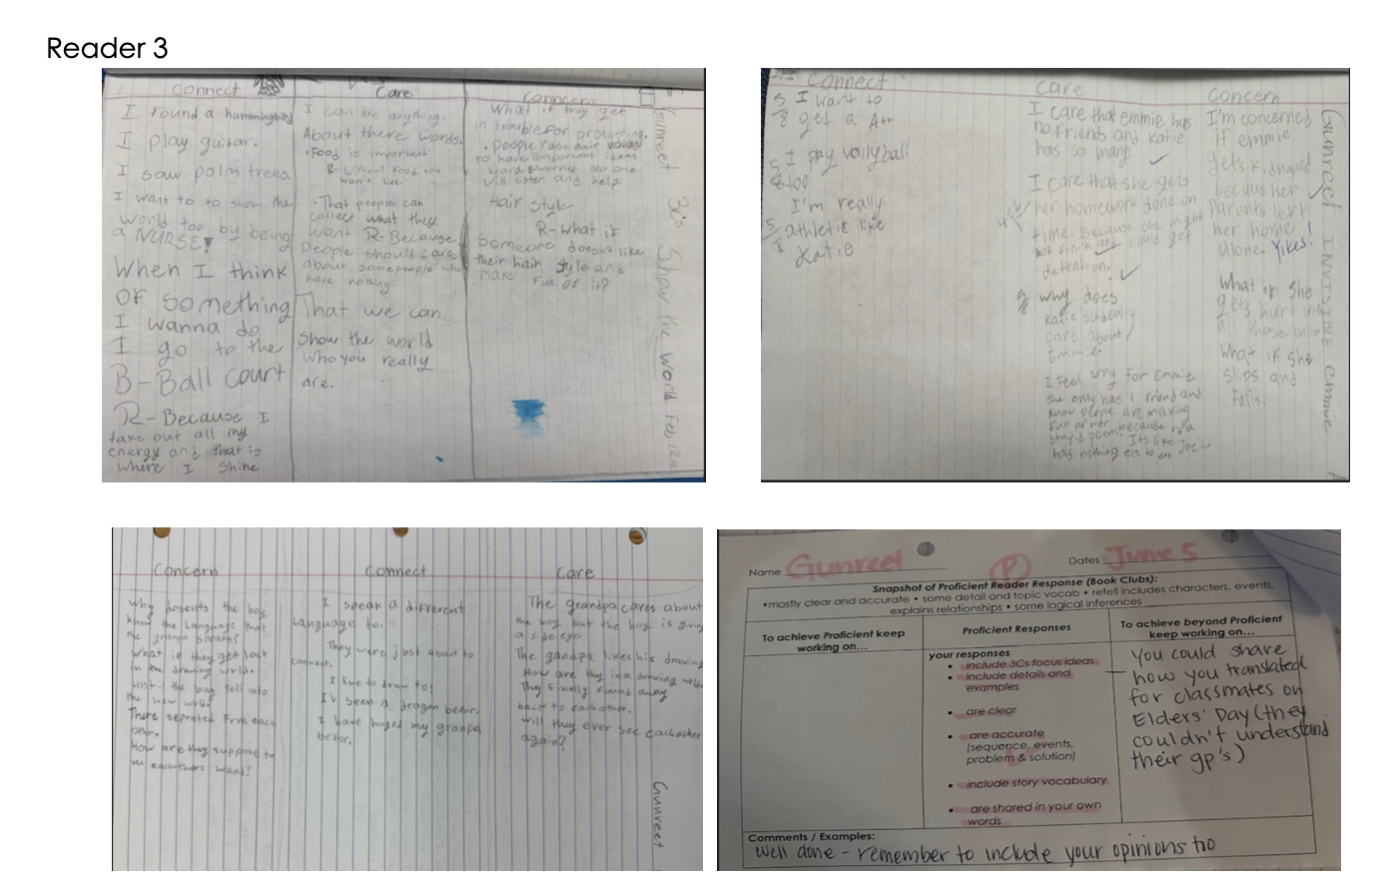 Reader 3
Connect
I found a hummingbird
I play guitar.
I saw palm trees
I want to to show the
world too by being
a NURSE!
When I think
of something
I wanna do
I go to the
B-Ball court
R-Because I
take out all my
energy and that is
where I shine
Care
I can be anything.
About there words.
•Food is important
R-Without food you
won't live
•That people can
collect what they
want R-Because
People should care
about some people who
have nothing.
That we can
show the world
who you really
are.
Conncern
What if they get
in trouble for protesting.
•People raise their voices
to have important ideas
heard
will listen and help.
Hair style
R-what if
someone doesn't like
their hair style and
make fun of it?
Gunreet 3c's Show the world Feb 12
Connect
5/8 I want to
get a A++
5/8 I pay vollyball
too
I'm really
5/8 athletic like
Katie
Care
I care that emmie has
no friends and Katie
has so many
I care that she gets
her homework done on
time. Because she might
not finish and could get
detention.
why does
Katie suddenly
care about
Emmie.
I feel sorry for Emmie
she only has 1 friend and
know people are making
fun of her because of a
stupid poem. Its like Joe
has nothing els to do
Concern
I'm concerned
if emmie
gets kidnaped
becaus her
Parents left
her home
alone. Yikes!
What if she
gets hurt with
all those balls
What if she
slips and
falls.
Gunreet INVISIBLE emmie
Concern
Why dosents the boy
know the language that
the granpa speaks?
What if they get lost
in the drawing world.
until the boy fell into
the new world
There seprated from each
other.
How are they suppose to
eachothers
Connect
I speak a different
language to.
They were just about to
connect.
I like to draw to!
I'v seen a dragon befor.
I have huged my granpa
befor.
Care
The grandpa cares about
the boy but the boy is giving
a side eye.
The gandpa likes his drawing
How are thy in a drawing world
They finally found away
back to each other.
will they ever see eachother
again?
Gunreet
Name Gunreet
P
Dates June 5
Snapshot of Proficient Reader Response (Book Clubs):
•mostly clear and accurate • some detail and topic vocab • retell includes characters, events,
explains relationships • some logical inferences
To achieve Proficient keep
working on...
Proficient Responses
your responses
• include 3Cs focus ideas
• include details and
examples
• are clear
• are accurate
(sequence, events,
problem & solution)
• include story vocabulary
• are shared in your own
words
To achieve beyond Proficient
keep working on...
You could share
how you translated
for classmates on
Elders' Day (they
couldn't understand
their gp's)
Comments / Examples:
Well done - remember to include your opinions too